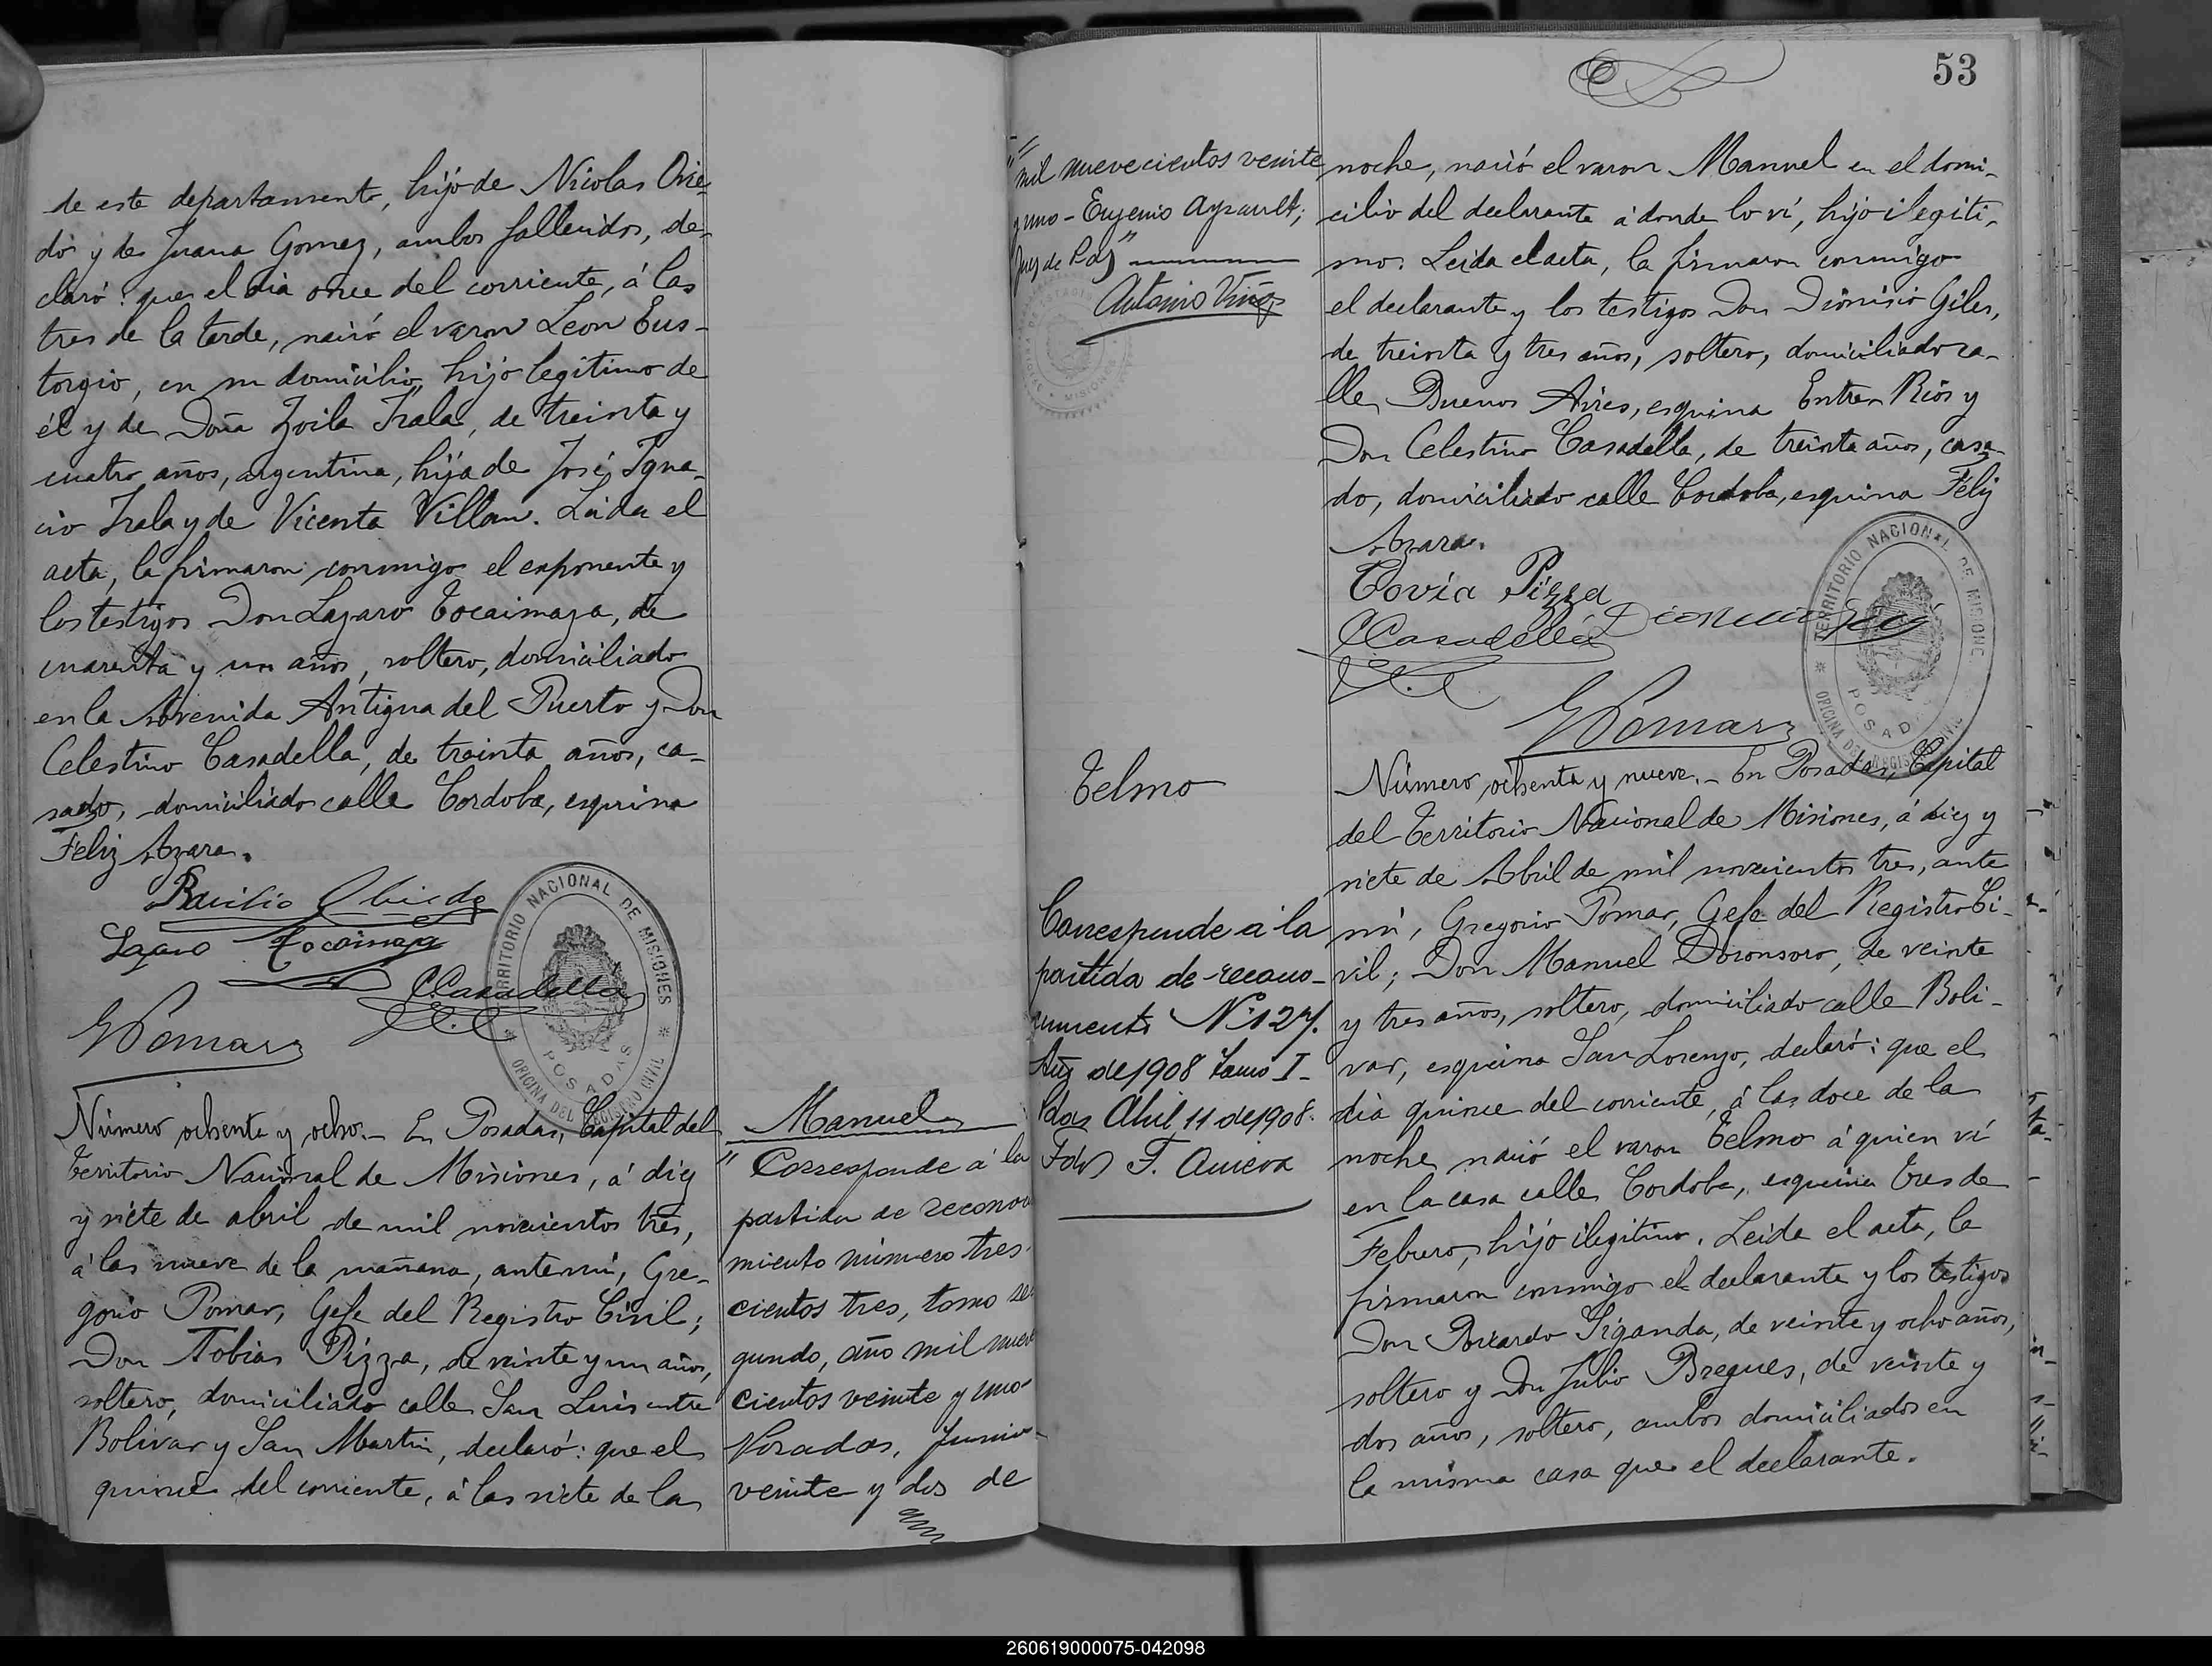 de este departamento, hijo de Nicolas Ovie-
do y de Juana Gomez, ambos fallecidos, de-
claró: que el dia once del corriente, á las
tres de la tarde, nació el varon Leon Eus-
torgio, en su domicilio, hijo legitimo de
él y de Doña Zoila Irala, de treinta y
cuatro años, argentina, hija de José Igna-
cio Irala y de Vicenta Villan. Leida el
acta, la firmaron conmigo el exponente y
los testigos Don Lazaro Tocaimaza, de
cuarenta y un años, soltero, domiciliado
en la Avenida Antigua del Puerto y Don
Celestino Casadella, de treinta años, ca-
sado, domiciliado calle Cordoba, esquina
Feliz Azara.
Basilio Obiedo
Lazaro Tocaimaza
CCasadella
GPomar
TERRITORIO NACIONAL DE MISIONES
OFICINA DEL REGISTRO CIVIL
POSADAS
Número ochenta y ocho.- En Posadas, Capital del
Territorio Nacional de Misiones, á diez
y siete de abril de mil novecientos tres,
á las nueve de la mañana, ante mi, Gre-
gorio Pomar, Gefe del Registro Civil;
Don Tobias Pizza, de veinte y un años,
soltero, domiciliado calle San Luis entre
Bolivar y San Martin, declaró: que el
quince del corriente, á las siete de la
Manuel
"Corresponde á la
partida de reconoci
miento número tres
cientos tres, tomo se
gundo, año mil nueve
cientos veinte y uno-
Posadas, Junio
veinte y dos de
53
mil nuevecientos veinte
y uno - Eugenio Ayrault;
Juez de Paz"
Antonio Viñas
MISIONES
noche, nació el varon Manuel en el domi-
cilio del declarante á donde lo ví, hijo ilegiti-
mo. Leida el acta, la firmaron conmigo
el declarante y los testigos Don Dionisio Giles,
de treinta y tres años, soltero, domiciliado ca-
lle Buenos Aires, esquina Entre Rios y
Don Celestino Casadella, de treinta años, casa-
do, domiciliado calle Cordoba, esquina Feliz
Azara.
Tovia Pizza
CCasadella
Dionisio
GPomar
TERRITORIO NACIONAL DE MISIONES
OFICINA DEL REGISTRO CIVIL
POSADAS
Telmo
Corresponde á la
partida de recono-
cimiento N. 127.
Año de 1908 Tomo I-
Pdas Abril 11 de 1908.
Fdo
Número ochenta y nueve.- En Posadas, Capital
del Territorio Nacional de Misiones, á diez y
siete de Abril de mil novecientos tres, ante
mi, Gregorio Pomar, Gefe del Registro Ci-
vil; Don Manuel Doronsoro, de veinte
y tres años, soltero, domiciliado calle Boli-
var, esquina San Lorenzo, declaró: que el
dia quince del corriente, á las doce de la
noche nació el varon Telmo á quien ví
en la casa calle Cordoba, esquina Tres de
Febrero, hijo ilegitimo. Leida el acta, la
firmaron conmigo el declarante y los testigos
Don Ricardo Siganda, de veinte y ocho años,
soltero y Don Julio Bregues, de veinte y
dos años, soltero, ambos domiciliados en
la misma casa que el declarante.
260619000075-042098